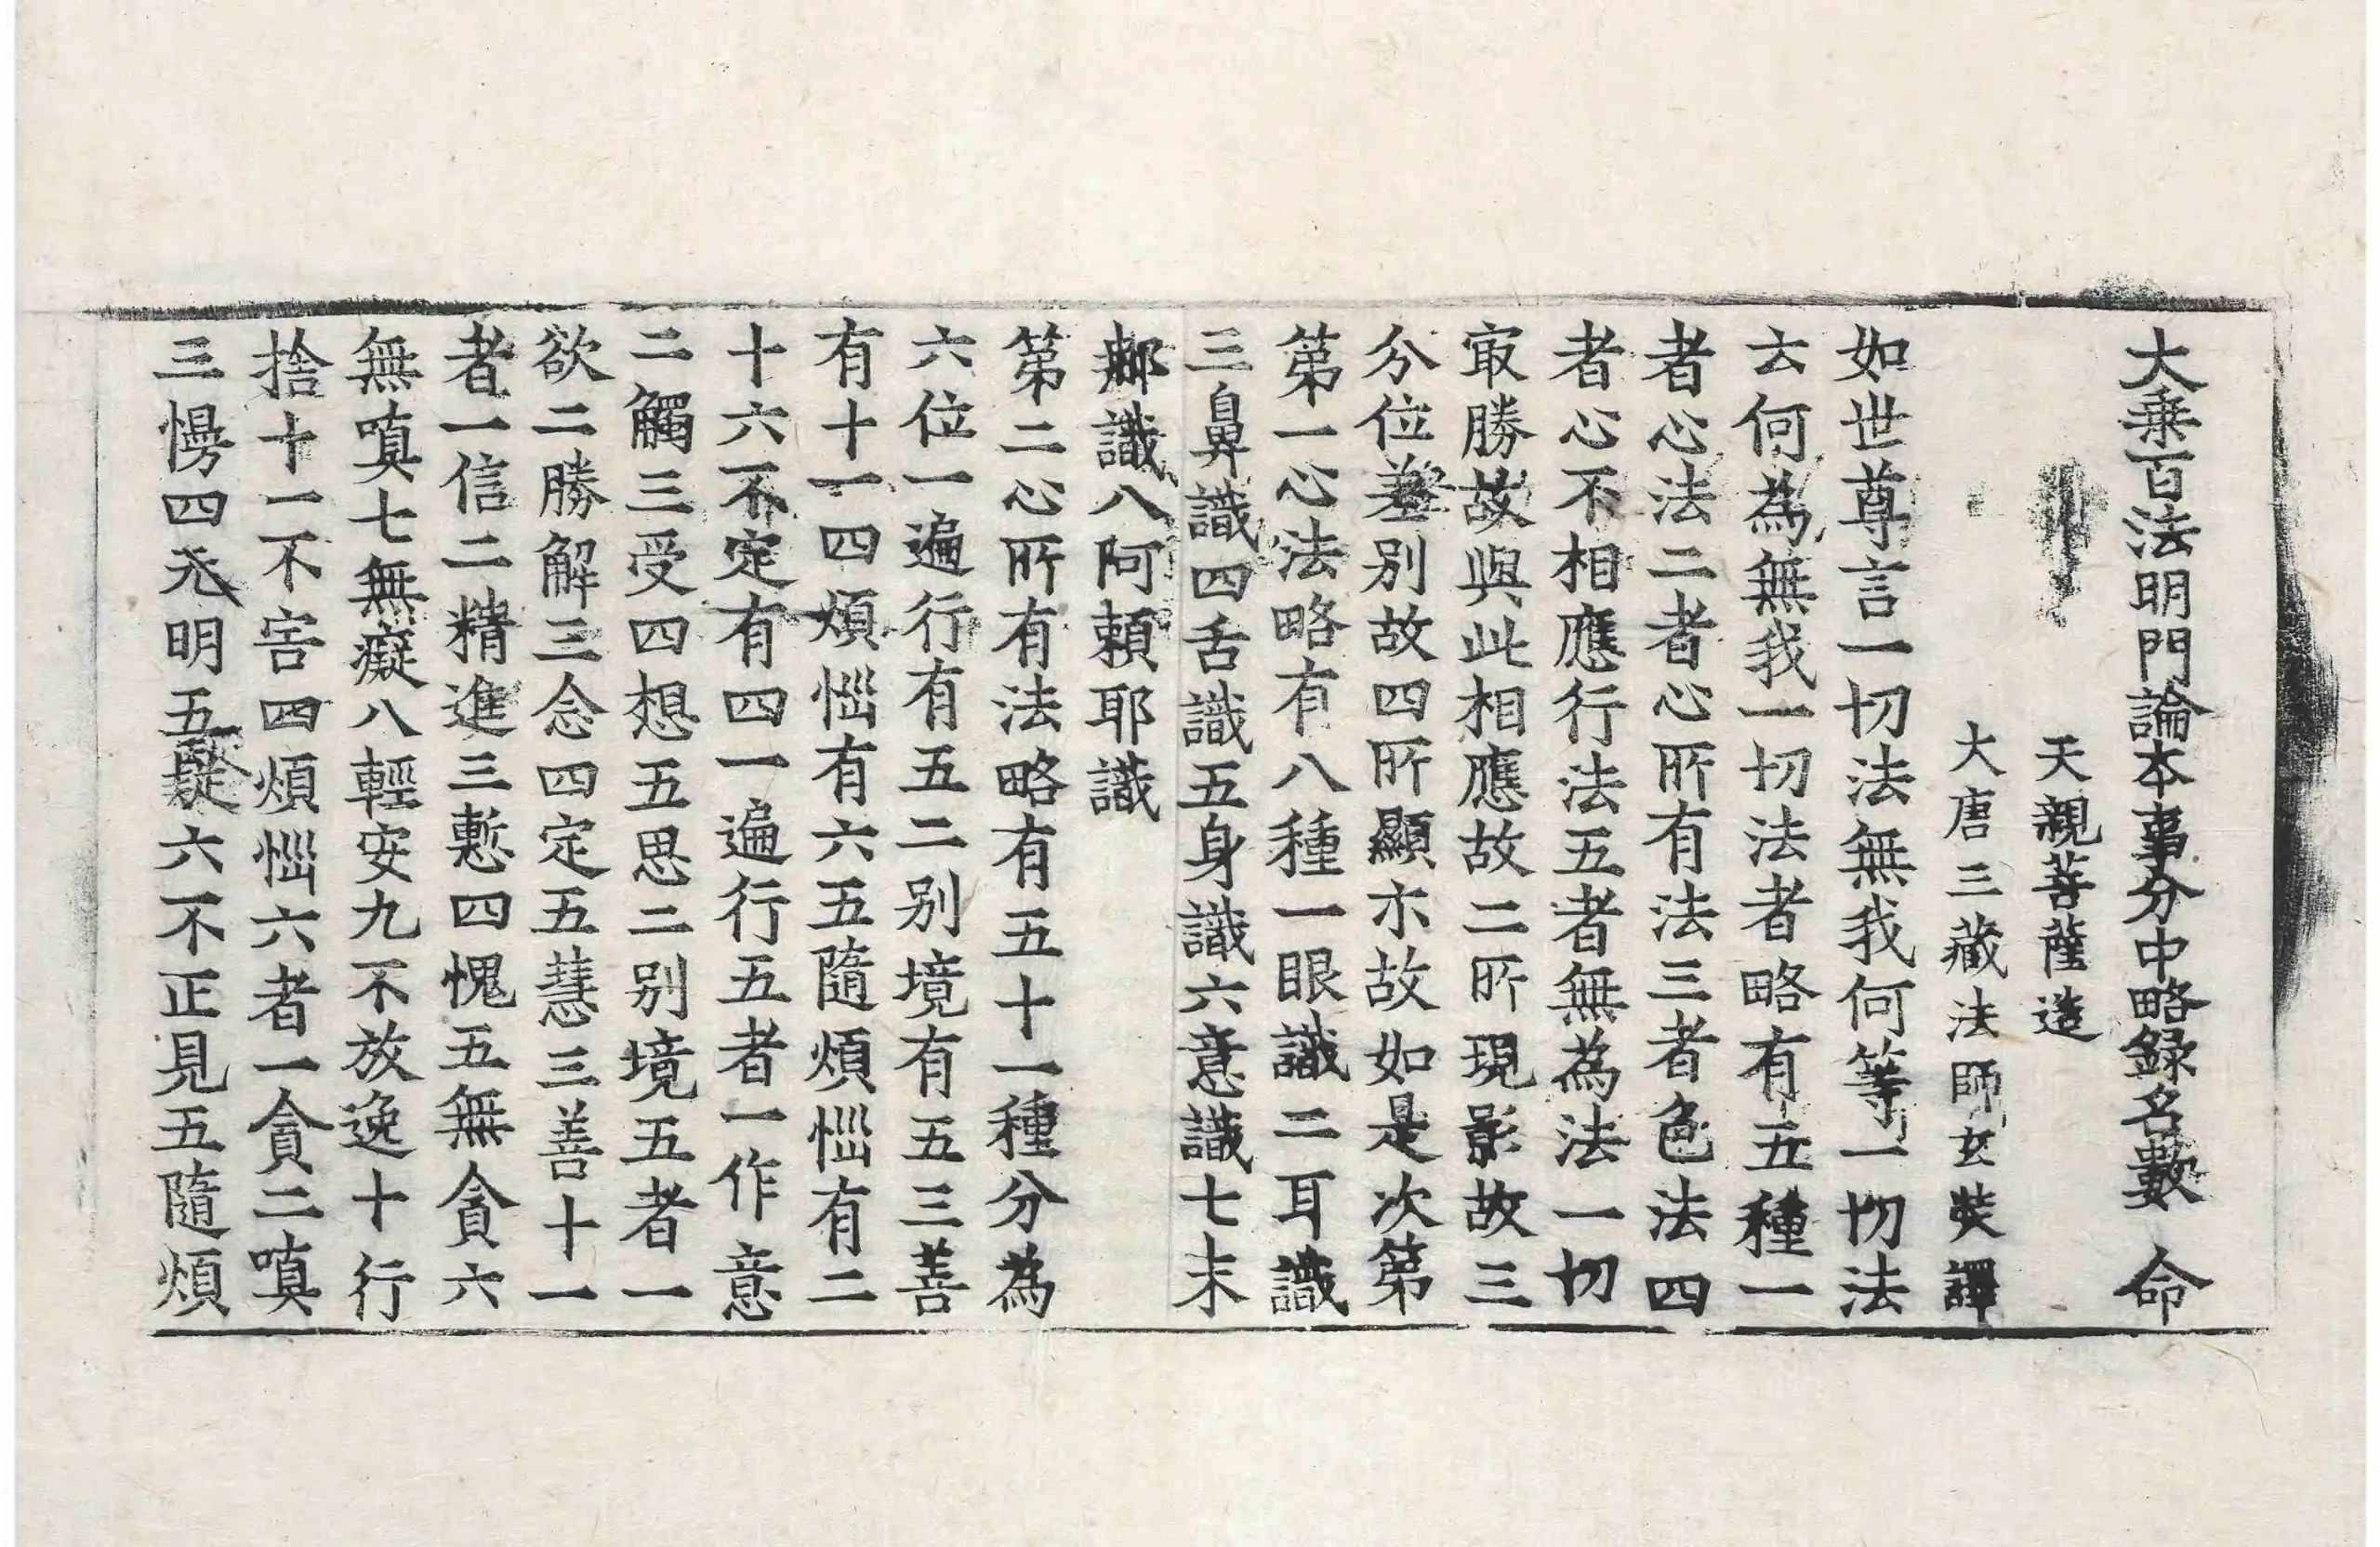 大乗百法明門論本事分中略録名數 命
天親菩薩造
大唐三藏法師玄奘譯
如世尊言一切法無我何等一切法
云何為無我一切法者略有五種一
者心法二者心所有法三者色法四
者心不相應行法五者無為法一切
㝡勝故與此相應故二所現影故三
分位差別故四所顯示故如是次第
第一心法略有八種一眼識二耳識
三鼻識四舌識五身識六意識七末
郍識八阿頼耶識
第二心所有法略有五十一種分為
六位一遍行有五二別境有五三善
有十一四煩惱有六五隨煩惱有二
十六不定有四一遍行五者一作意
二觸三受四想五思二別境五者一
欲二勝解三念四定五慧三善十一
者一信二精進三慙四愧五無貪六
無嗔七無癡八輕安九不放逸十行
捨十一不害四煩惱六者一貪二嗔
三慢四无明五疑六不正見五隨煩